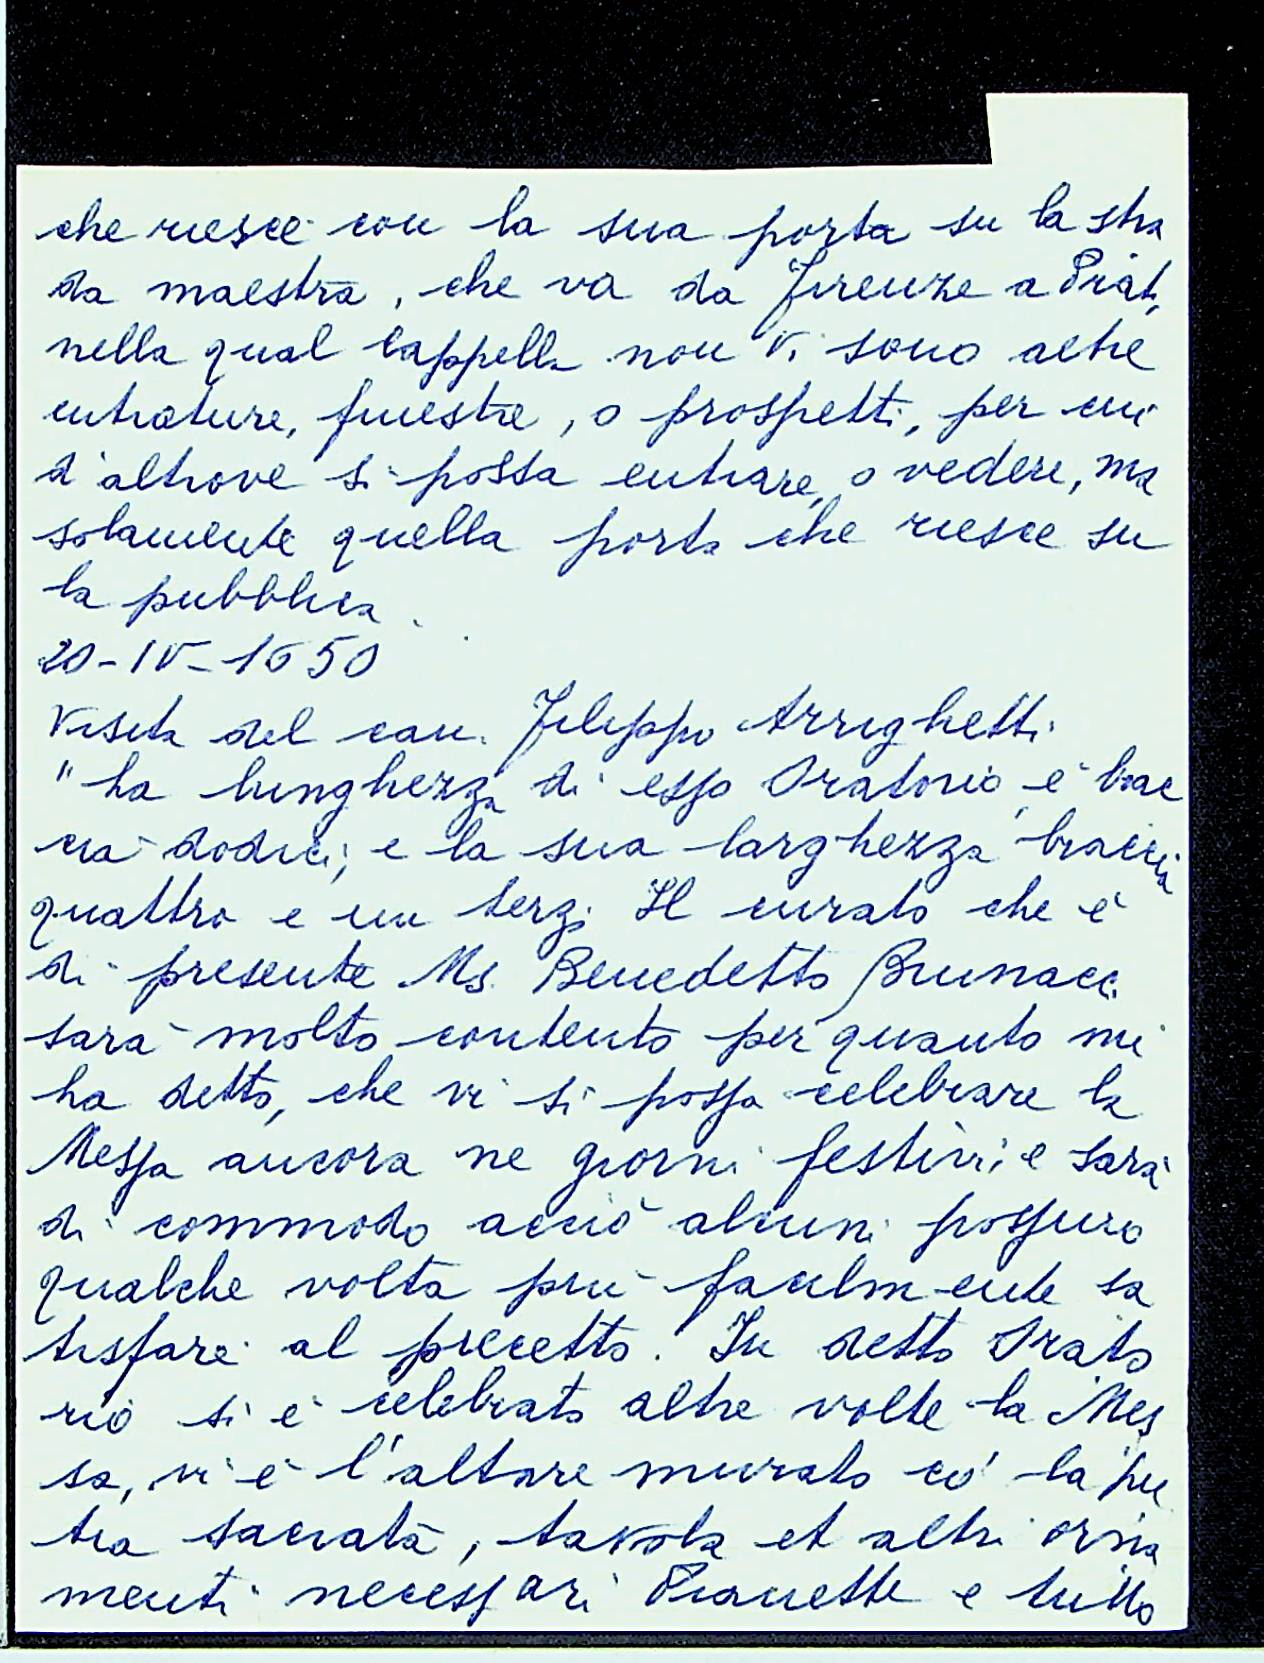 che riesce con la sua porta su la stra
da maestra, che va da Firenze a Prat,
nella qual Cappella non vi sono altre
entrature, finestre, o prospetti, per cui
d'altrove si possa entrare, o vedere, ma
solamente quella porta che riesce su
la pubblica.
20-IV-1650
Visita del can. Filippo Arrighetti
"La lunghezza di esso Oratorio è brac
cia dodici, e la sua larghezza braccia
quattro e un terzo Il curato che è
di presente Ms. Benedetto Brunacci
sarà molto contento per quanto mi
ha detto, che vi si possa celebrare la
Messa ancora ne giorni festivi, e sarà
di commodo acciò alcuni possino
qualche volta più facilmente sa
tisfare al precetto. In detto Orato
rio si è celebrato altre volte la Mes
sa, vi è l'altare murato co' la pie
tra sacrata, tavola et altri orna
menti necessari Pianette e tutto